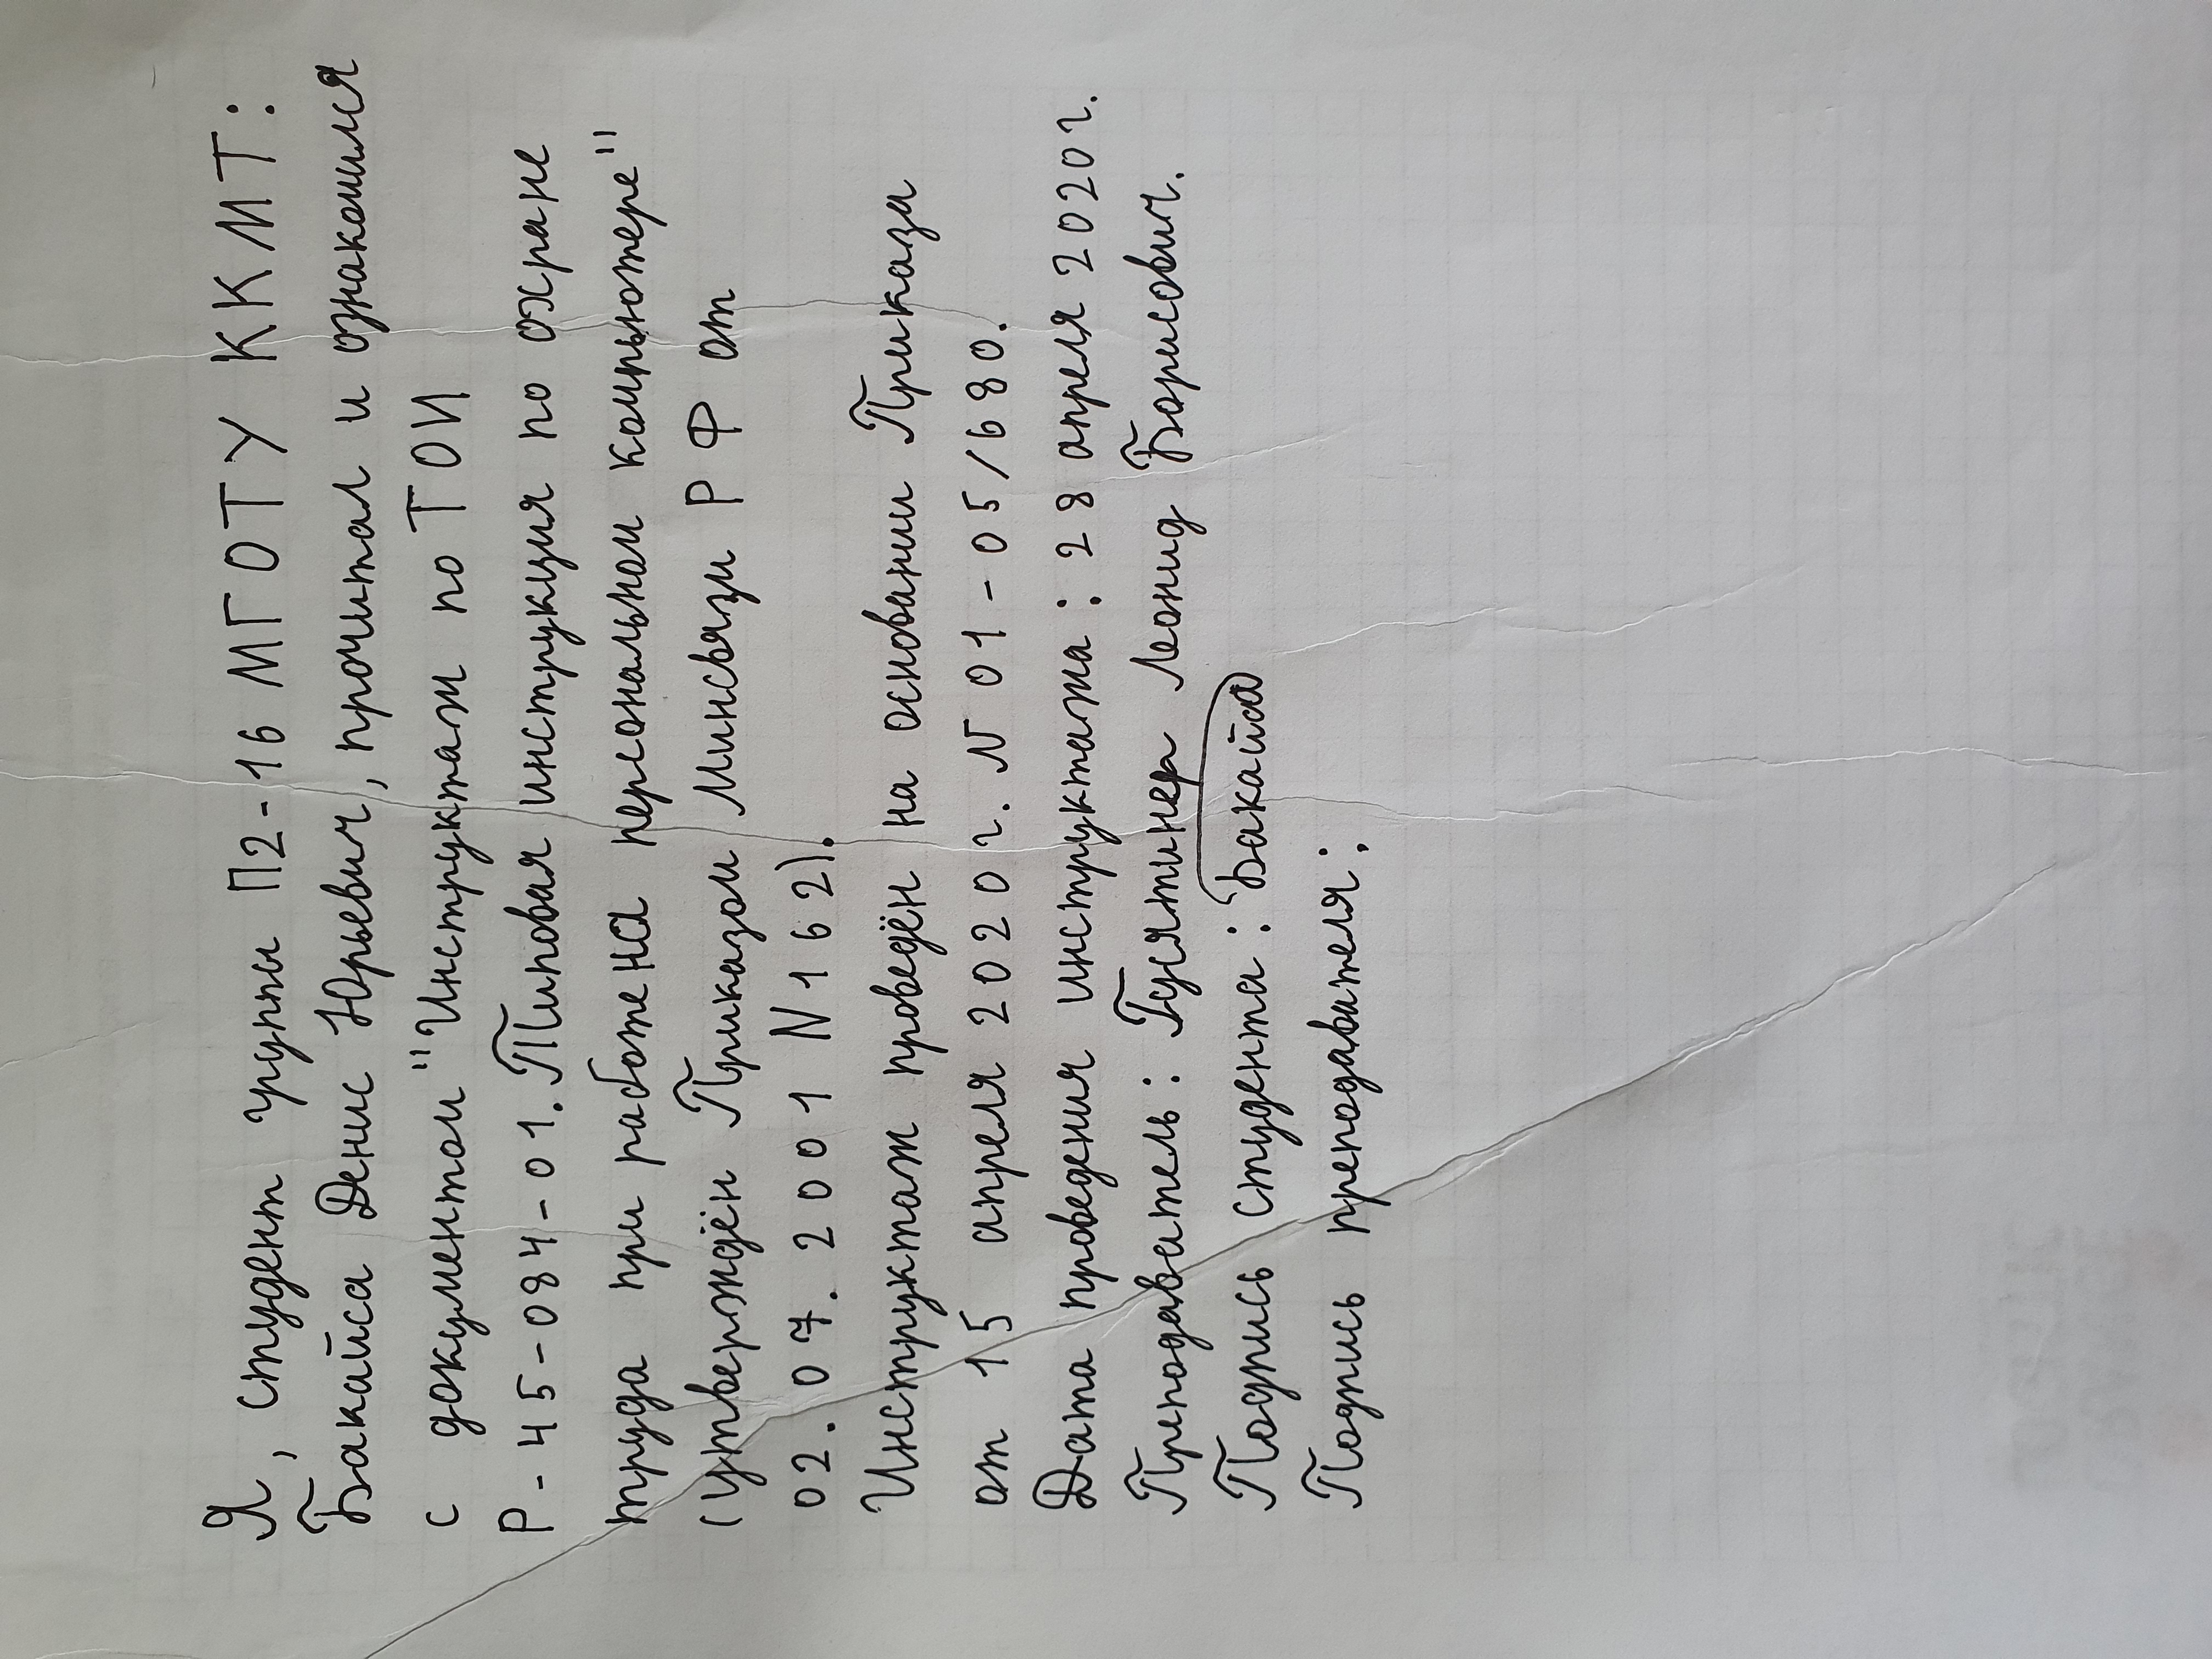 Я, студент группы П2-16 МГОТУ ККМТ:
Бакайса Денис Юрьевич, прочитал и ознакомился
с документом "Инструктаж по ТОИ
Р-45-084-01. Типовая инструкция по охране
труда при работе на персональном компьютере"
(утверждён Приказом Минсвязи РФ от
02.07.2001 N162).
Инструктаж проведён на основании Приказа
от 15 апреля 2020г. N 01-05/680.
Дата проведения инструктажа: 28 апреля 2020г.
Преподаватель: Гусятинер Леонид Борисович.
Подпись студента: Бакайса
Подпись преподавателя: